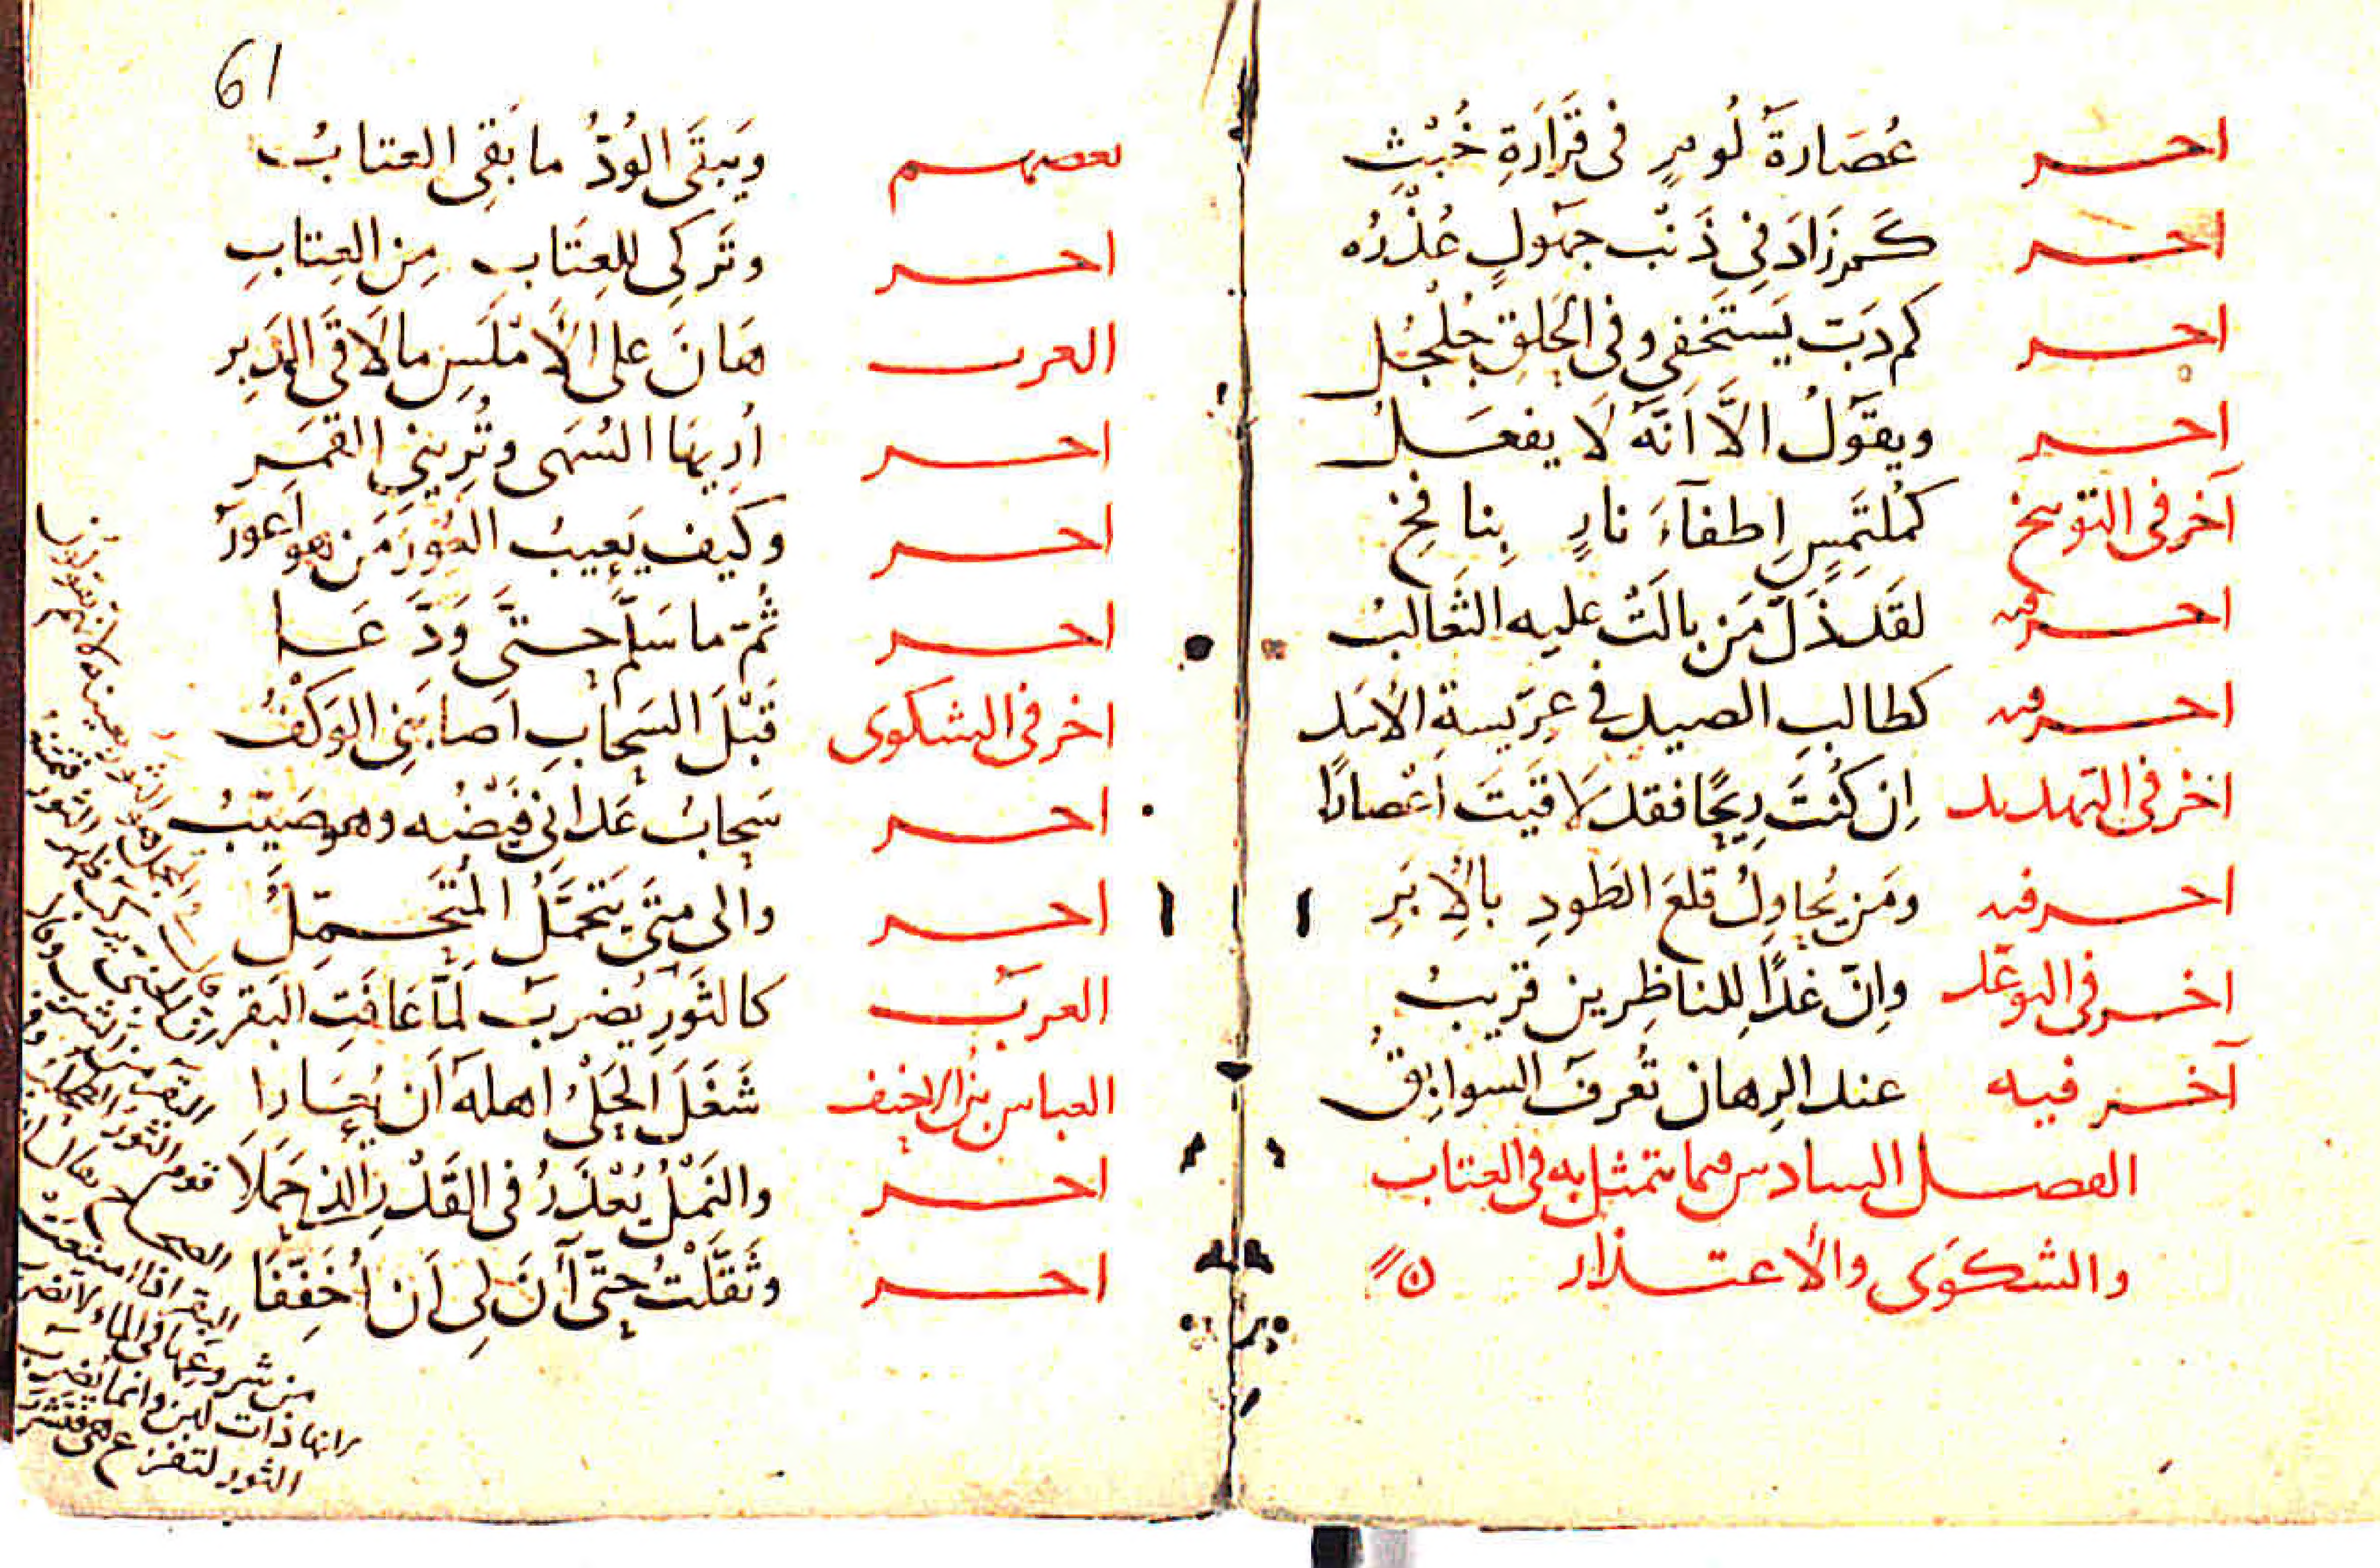 احر عُصَارَةُ لُومٍ فى قَرَارَةِ خُبْثٍ
احر كَمْ زَادَ فِى ذَنْبِ جَهُولٍ عُذْرُهُ
احر كم دَبَّ يَسْتَخْفِى وفى الحَلقِ جُلْجُل
احر ويقولُ الاَّ اَنَّهُ لَا يفعَلُ
آخر فى التوبيخ كَمُلتَمِسٍ اِطفآءَ نارٍ بِنافِخِ
احر فيه لقَد ذَلَّ مَن بالَتْ عليه الثَعالبُ
احر فيه كطالبِ الصيدِ فى عِرّيسةِ الأسَد
اخر فى التهديد اِن كُنْتَ رِيحًا فقد لَاقَيتَ اعْصارًا
احر فيه ومَن يُحاوِلُ قلعَ الطَودِ بالأِبَرِ
اخر فى التوعّد واِنّ غدًا لِلناظِرين قريبُ
آخر فيه عند الرِهان تُعرفُ السوابِقُ
الفصل السادس فيما يتمثل به فى العتاب
والشكوَى والأعتذار
61
بعضهم ويَبقَى الوُدُّ ما بَقِى العتابُ
احر وتَركِى للعِتَابِ مِن العِتابِ
العرب هَانَ على الأَمْلَسِ ما لَاقَى الدَبِر
احر اُرِيهَا السُهَى وتُرِينِى القمَر
احر وكيف يَعِيبُ العُورَ مَن هو اَعورُ
احر ثُمّ ما سَلَّم حتَّى وَدَّعَا
اخر فى الشكوى قَبْلَ السَحابِ اَصابَنِى الوَكْفُ
احر سَحابُ عَدانى فَيْضُه وهو صَيّبُ
احر والى متَى يَتَحَمَّلُ المُتَحَمِّلُ
العرب كالثَورِ يُضربُ لَمّا عَافَتِ البَقر
العباس بن الاحنف شَغَلَ الحَلْىُ اهلَهُ اَن يُعَارا
احر والنَمْلُ يُعْذَرُ فى القَدْرِ الذى حَمَلَا
احر وثَقَّلْتُ حتَّى آنَ لِى اَن اُخَفِّفَا
البقر اذا امتنعت
من شروعها فى الماء لا تضرب
لانها ذات لبن وانما يضرب
الثور لتفزع هى فتشرب